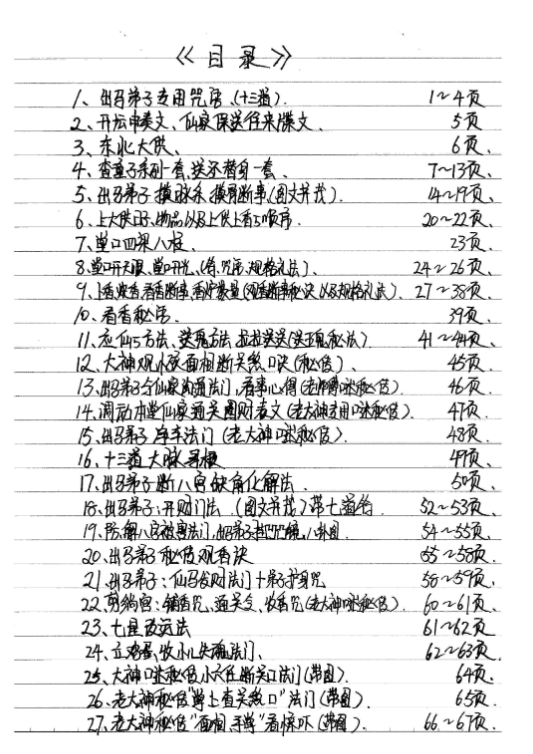 《目录》
1、出马弟子专用咒语、(十三道). 1～4页
2、开坛申表文、仙家保送任来牒文、 5页
3、东北大供、 6页、
4、查童子系列一套、送还替身一套、 7～13页、
5、出马弟子摸脉杀、摸骨断事(图文并茂). 14～19页、
6、上大供 物品以及上供上香顺序. 20～22页、
7、堂口四梁八柱、 23页、
8、堂口开天眼、堂口开光、(条咒语、规格礼法)、 24～26页、
9、以及规格礼法). 27～38页、
10、看香秘语. 39页、
11、方法、送鬼方法、秘法) 41～44页、
12、大神观 面相断关煞口诀(秘传). 45页、
13、出马弟子与仙家沟通法门、看事心得(秘传). 46页、
14、调动本堂仙家通关图财表文(老大神专用口味秘传). 47页、
15、出马弟子 法门(老大神口味秘传). 48页、
16、十三道大脉 49页、
17、出马弟子断八宫缺角化解法、 50页、
18、出马弟子:开财门法 (图文并茂)带七道 52～53页、
19、防解八宫 法门、出马弟子 镜、八卦图. 54～55页、
20、出马弟子秘传观香决 55～58页、
21、出马弟子:仙马发财法门+弟子护身咒 58～59页、
22、铺香咒、通关文、发香咒(老大神口味秘传). 60～61页、
23、七星改运法 61～62页
24、立鸡蛋、收小儿失魂法门、 62～63页、
25、大神口味秘传小六任断关口法门(带图). 64页、
26、老大神秘传"掌上查关煞口"法门(带图). 65页、
27、老大神秘传"面相手掌"看惊吓(带图)、 66～67页、